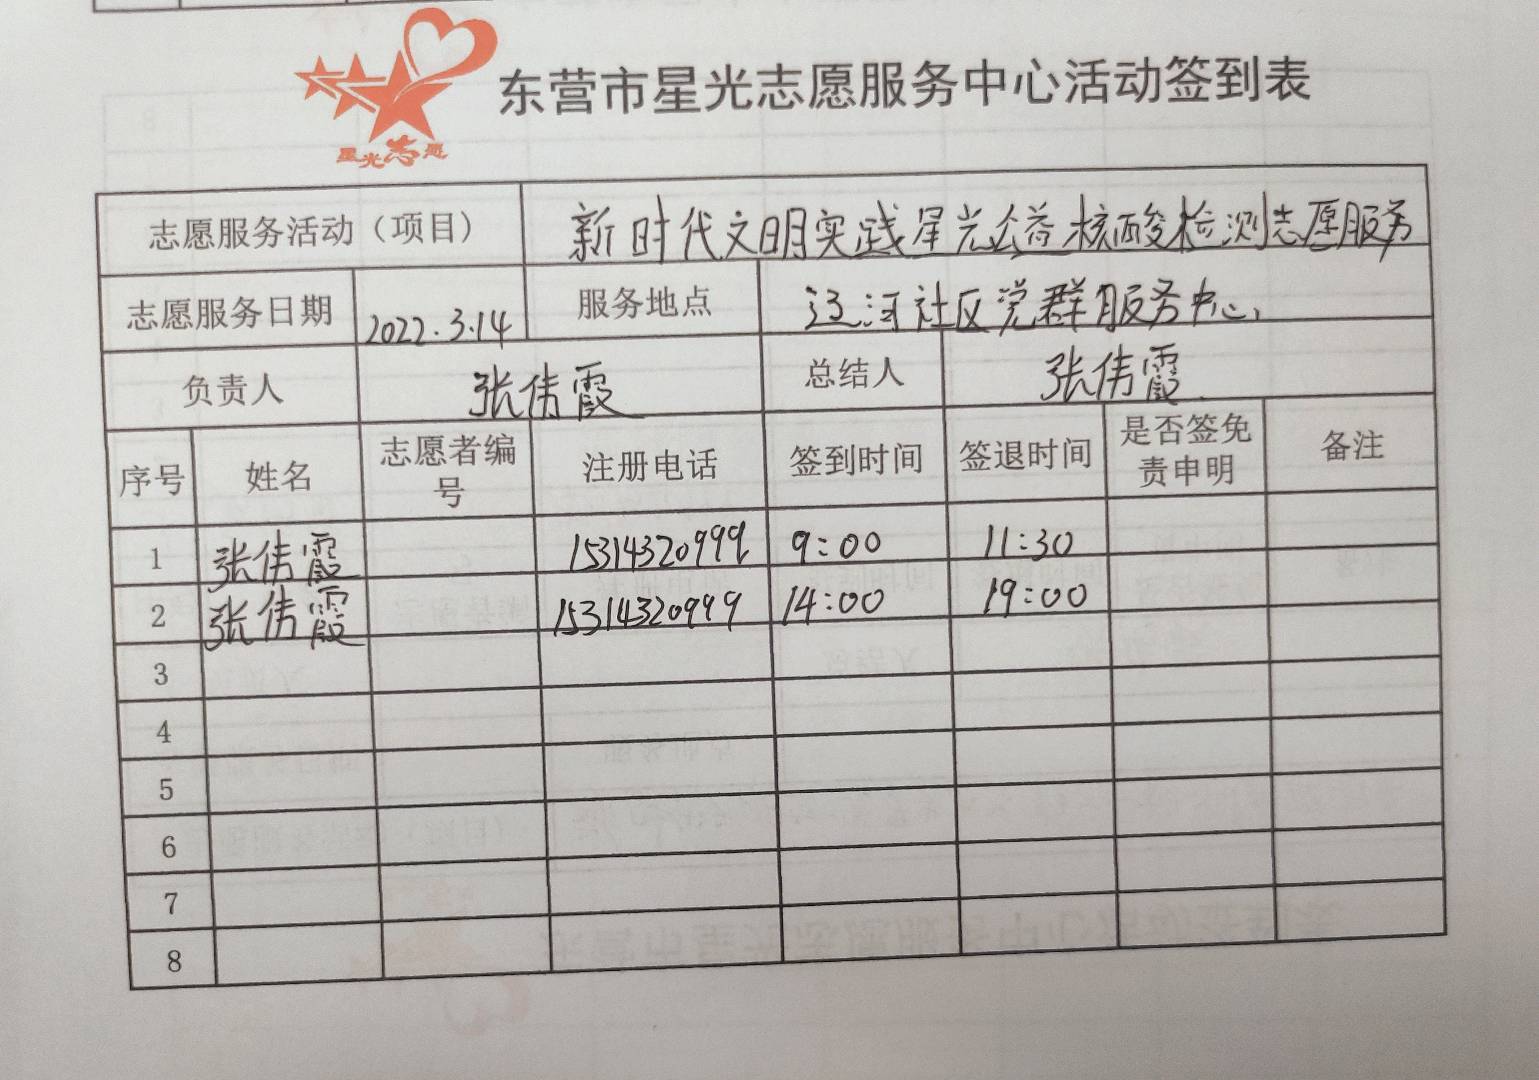 星光志愿
东营市星光志愿服务中心活动签到表
志愿服务活动（项目） 新时代文明实践星光公益核酸检测志愿服务
志愿服务日期 2022.3.14 服务地点 辽河社区党群服务中心
负责人 张伟霞 总结人 张伟霞
序号 姓名 志愿者编号 注册电话 签到时间 签退时间 是否签免责申明 备注
1 张伟霞 15314320999 9:00 11:30
2 张伟霞 15314320999 14:00 19:00
3
4
5
6
7
8